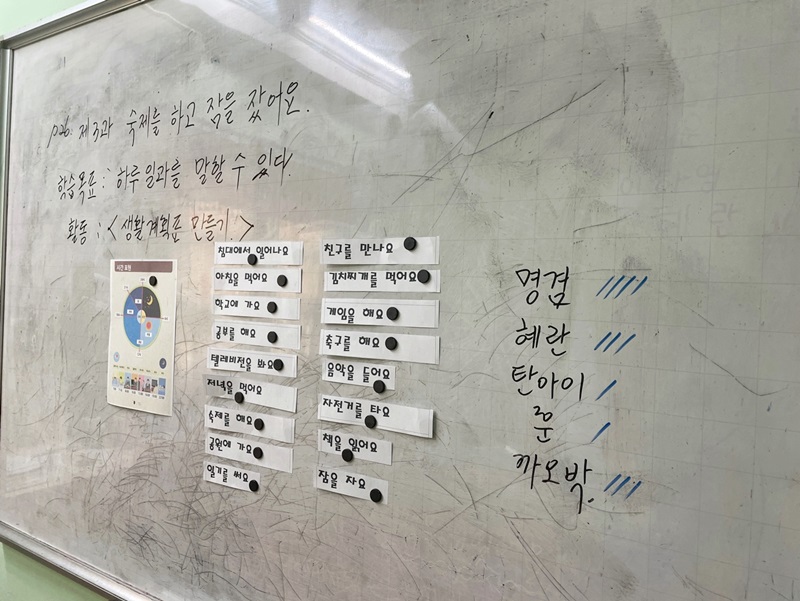 p26. 제3과 숙제를 하고 잠을 잤어요.
학습목표 : 하루일과를 말할 수 있다.
활동 : <생활계획표 만들기.>
침대에서 일어나요
아침을 먹어요
학교에 가요
공부를 해요
텔레비전을 봐요
저녁을 먹어요
숙제를 해요
공원에 가요
일기를 써요
친구를 만나요
김치찌개를 먹어요
게임을 해요
축구를 해요
음악을 들어요
자전거를 타요
책을 읽어요
잠을 자요
명겸
혜란
탄아이
룬
까오박.